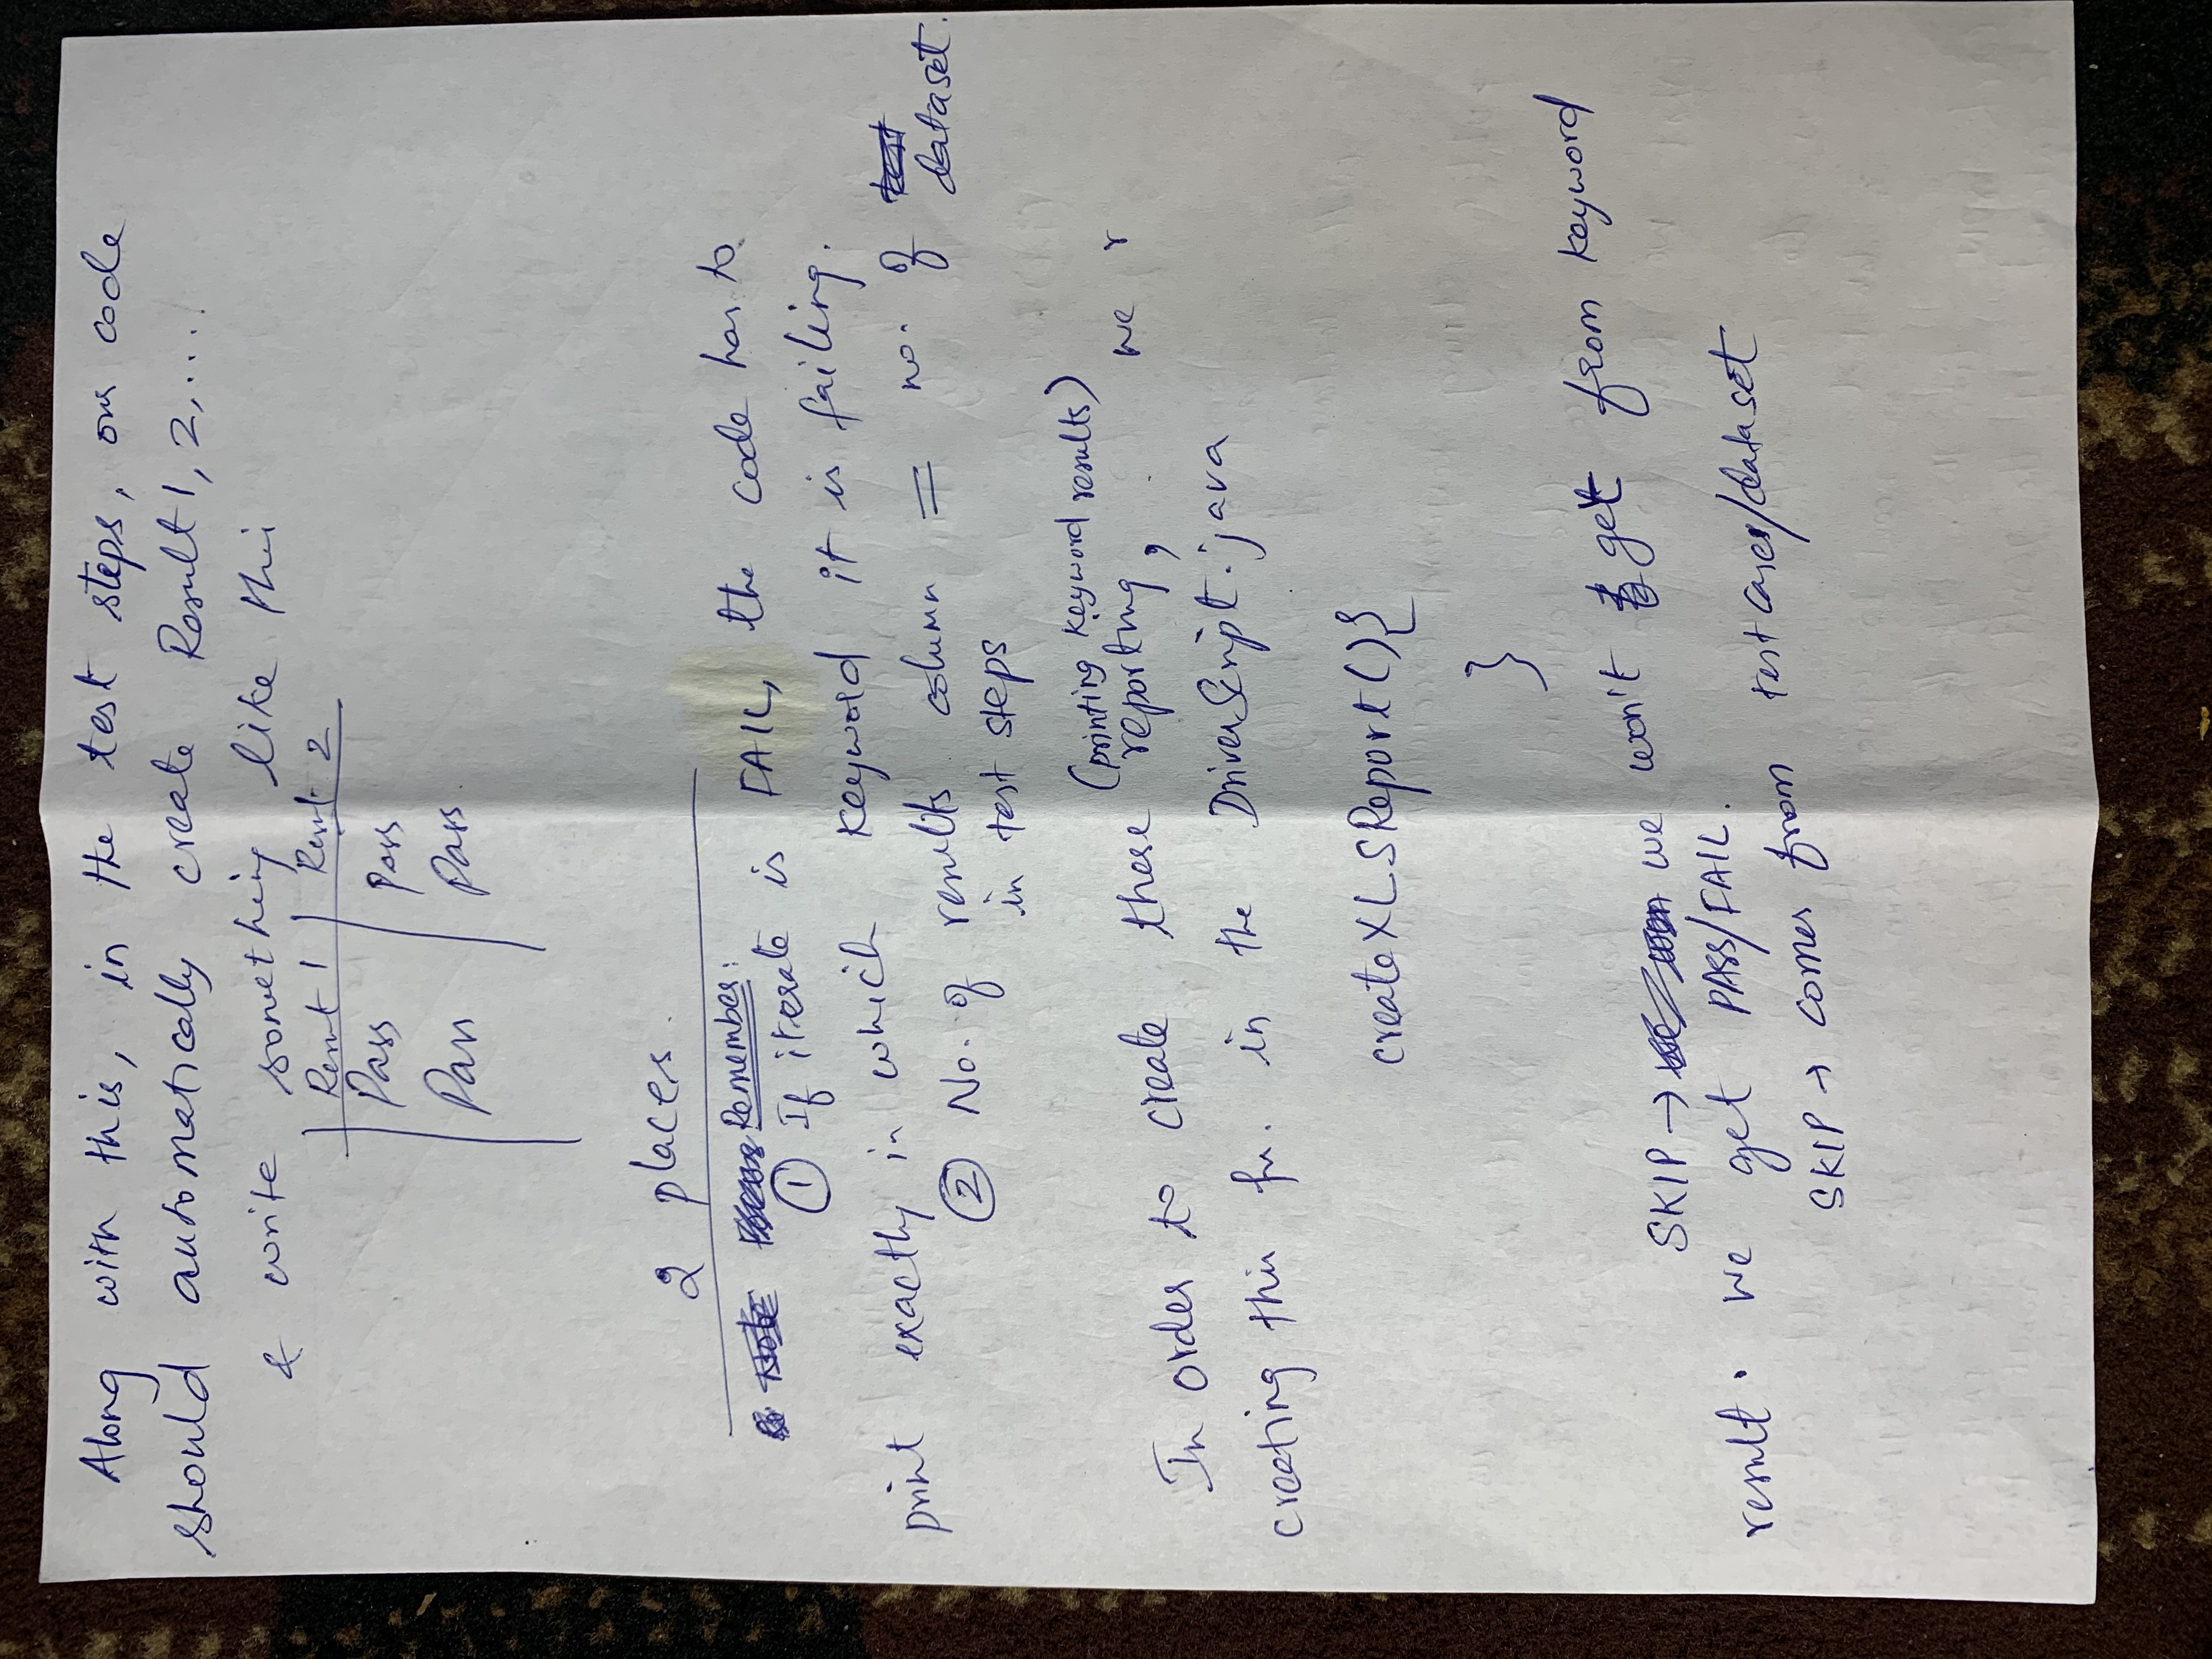 Along with this, in the test steps, our code
should automatically create Result 1, 2, ....
& write something like this
Result 1 | Result 2
Pass | pass
Pass | Pass.
2 places.
Remember:
① If iterate is FAIL, the code has to
print exactly in which keyword it is failing.
② No. of results column = no. of dataset.
in test steps
(printing keyword results)
In order to create these reporting, we r
creating this fn. in the DriverScript.java
createXLSReport(){
}
SKIP → we won't get from keyword
result. We get PASS/FAIL.
SKIP → comes from test cases/dataset